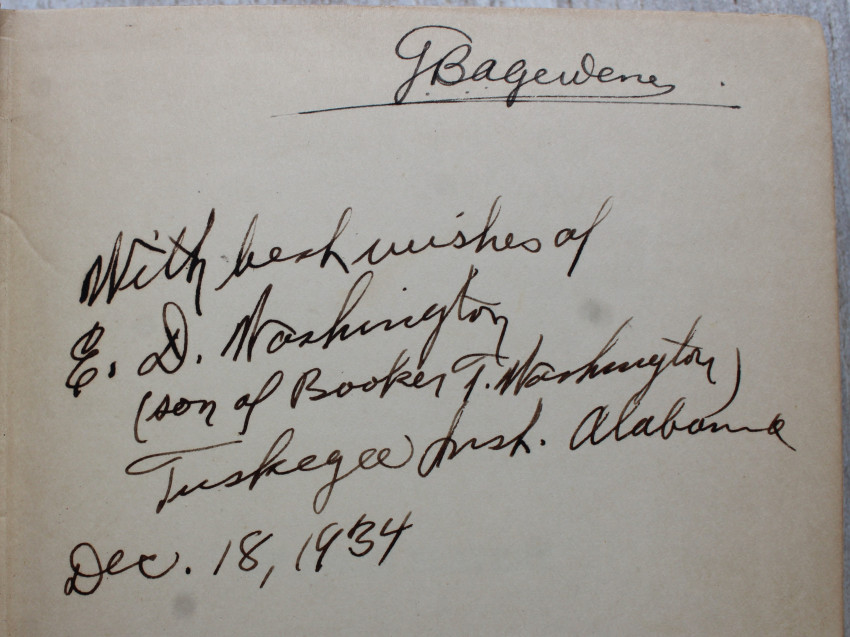 With best wishes of
E. D. Washington
(son of Booker T. Washington)
Tuskegee Inst. Alabama
Dec. 18, 1934